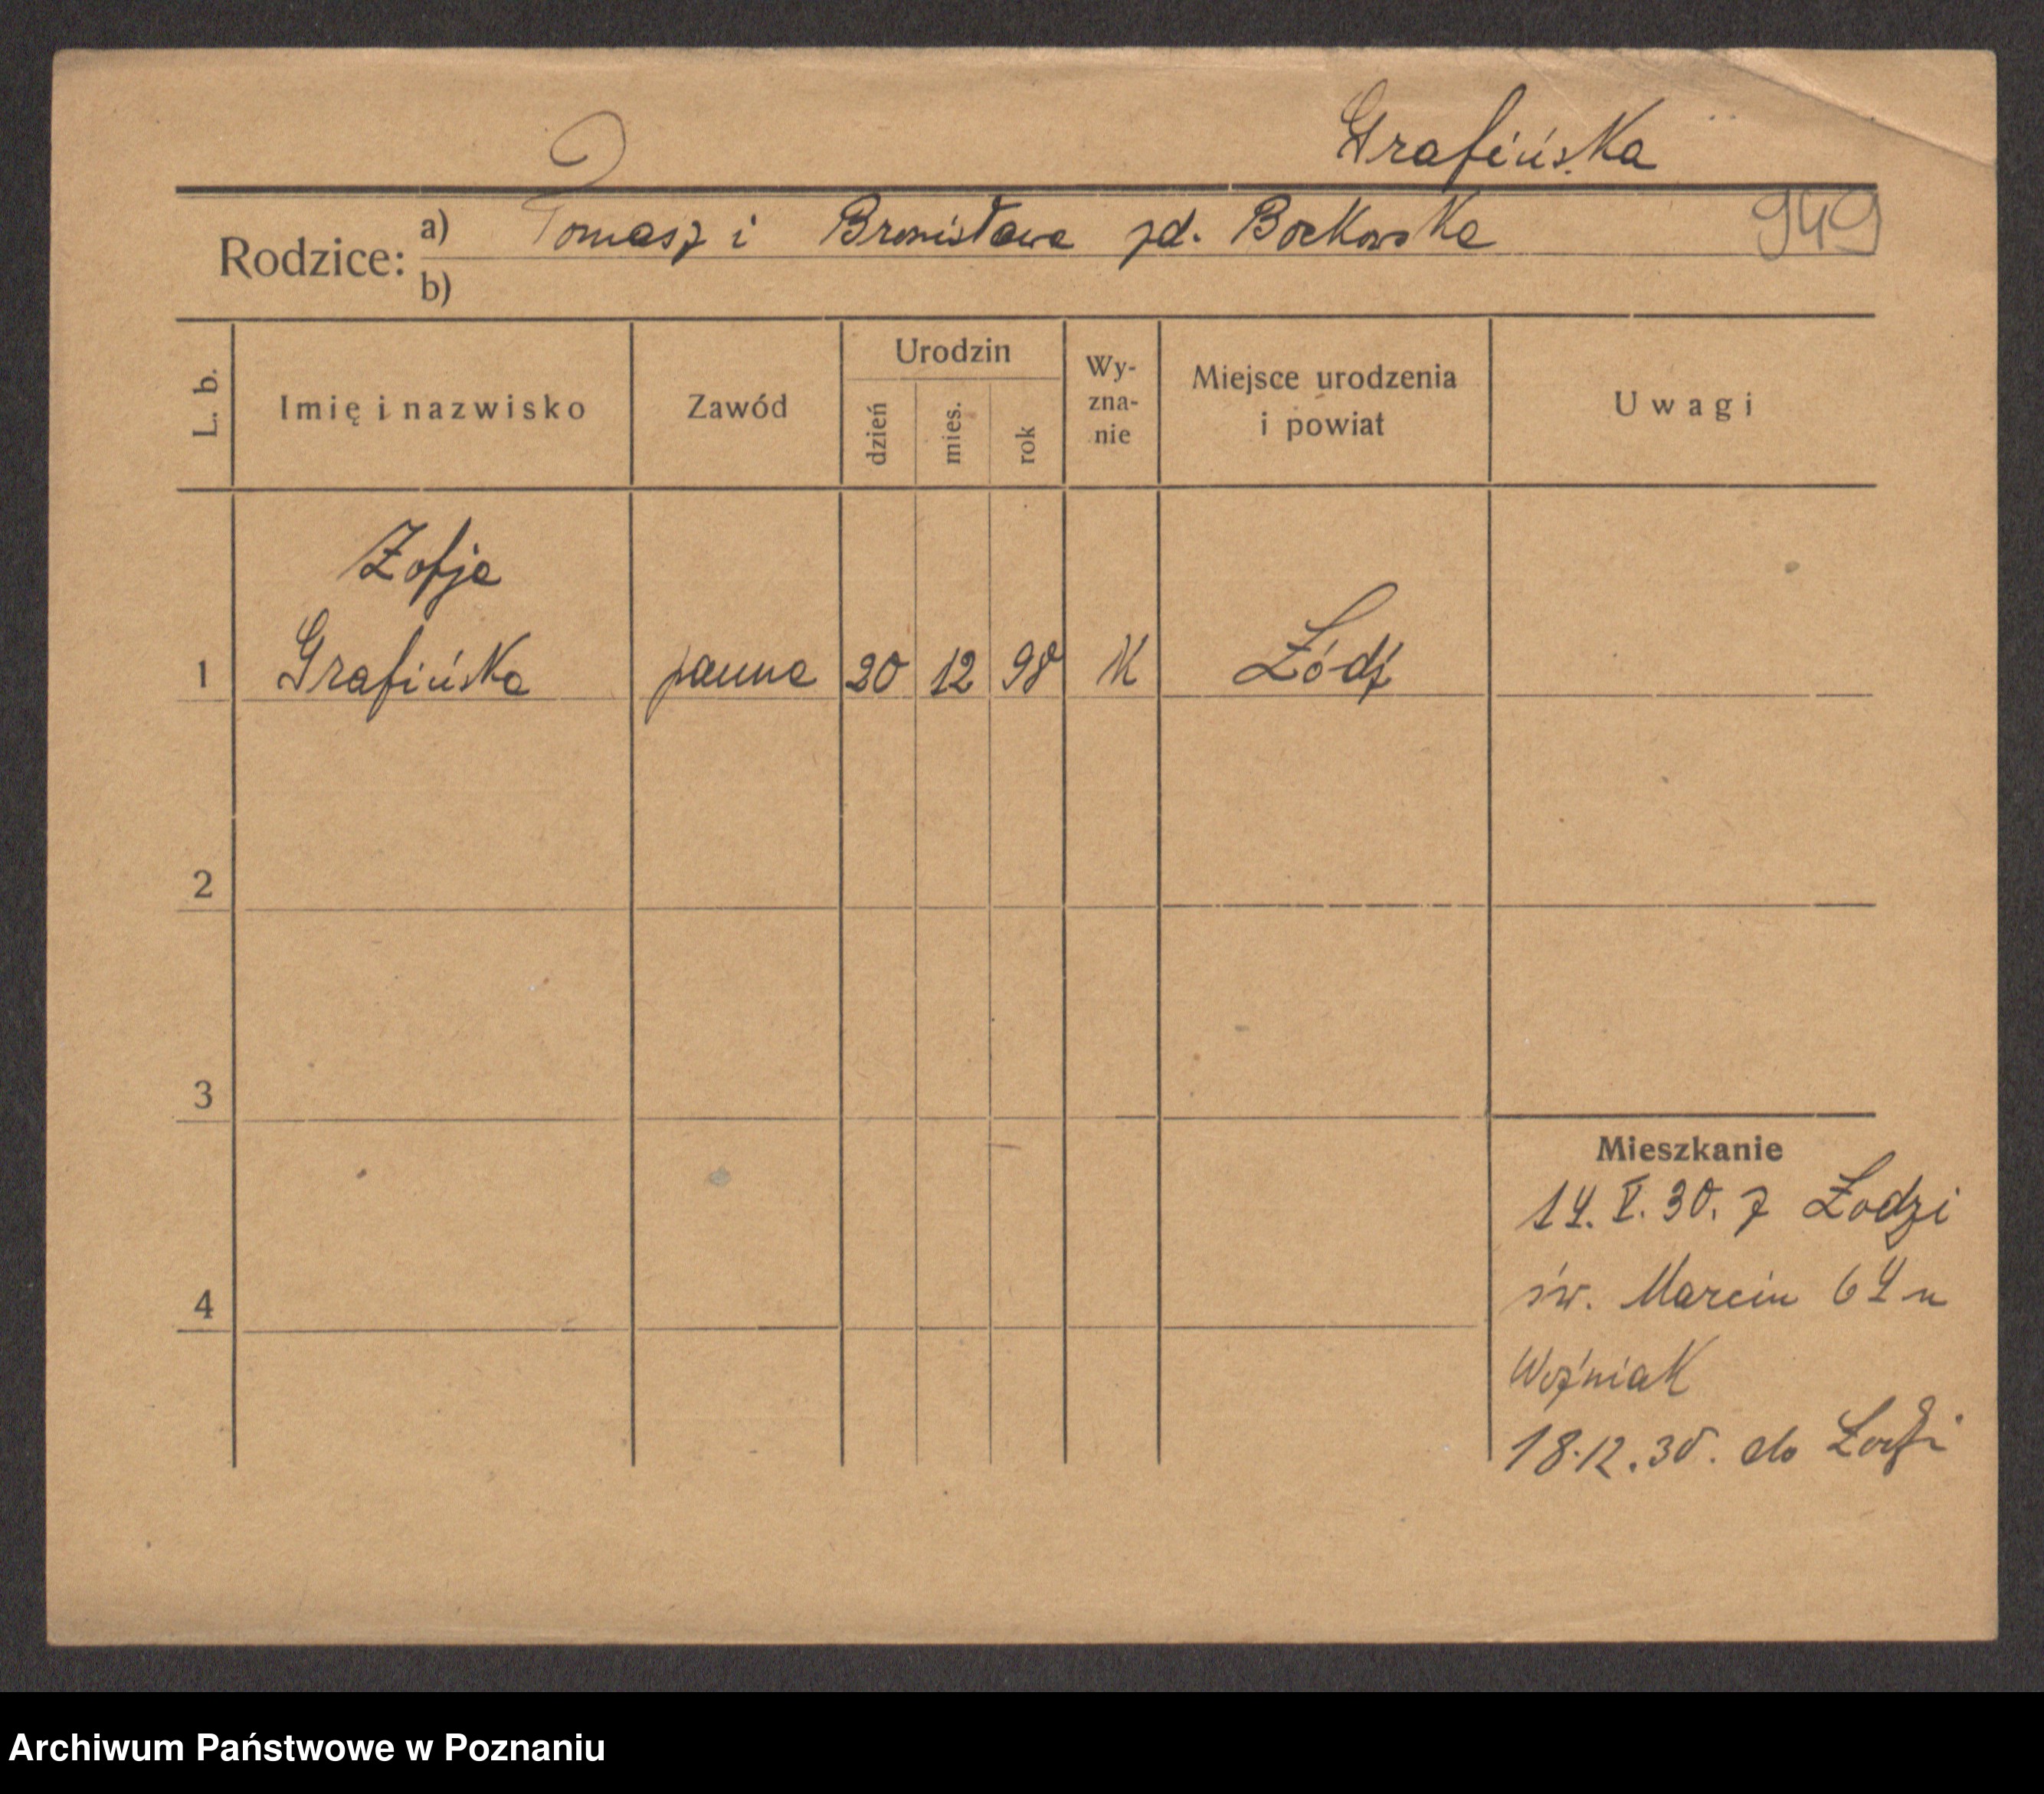 Grafińska
Rodzice: a) Tomasz i Bronisława zd. Borkowska 949
b)
L. b. Imię i nazwisko Zawód Urodzin dzień mies. rok Wy-zna-nie Miejsce urodzenia i powiat Uwagi
Zofja
1 Grafińska panna 20 12 98 K Łódź
2
3
Mieszkanie
14. V. 30. z Łodzi
4 św. Marcin 64 u
Woźniak
18.12.30. do Łodzi
Archiwum Państwowe w Poznaniu